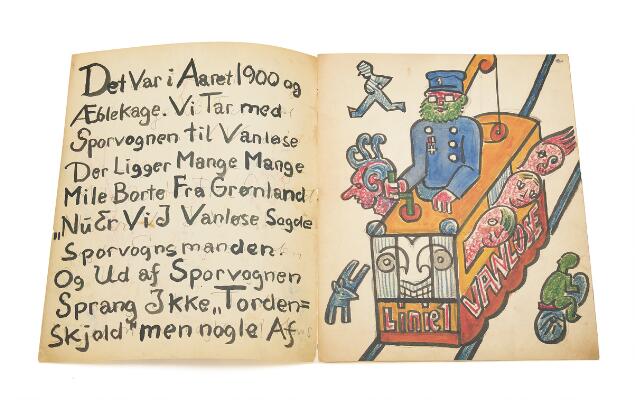 Det Var i Aaret 1900 og
Æblekage. Vi Tar med
Sporvognen til Vanløse
Der Ligger Mange Mange
Mile Borte Fra Grønland
„Nu Er Vi I Vanløse Sagde
Sporvognsmanden.
Og Ud af Sporvognen
Sprang Ikke „Torden=
Skjold" men nogle Af
VANLØSE
Linie 1